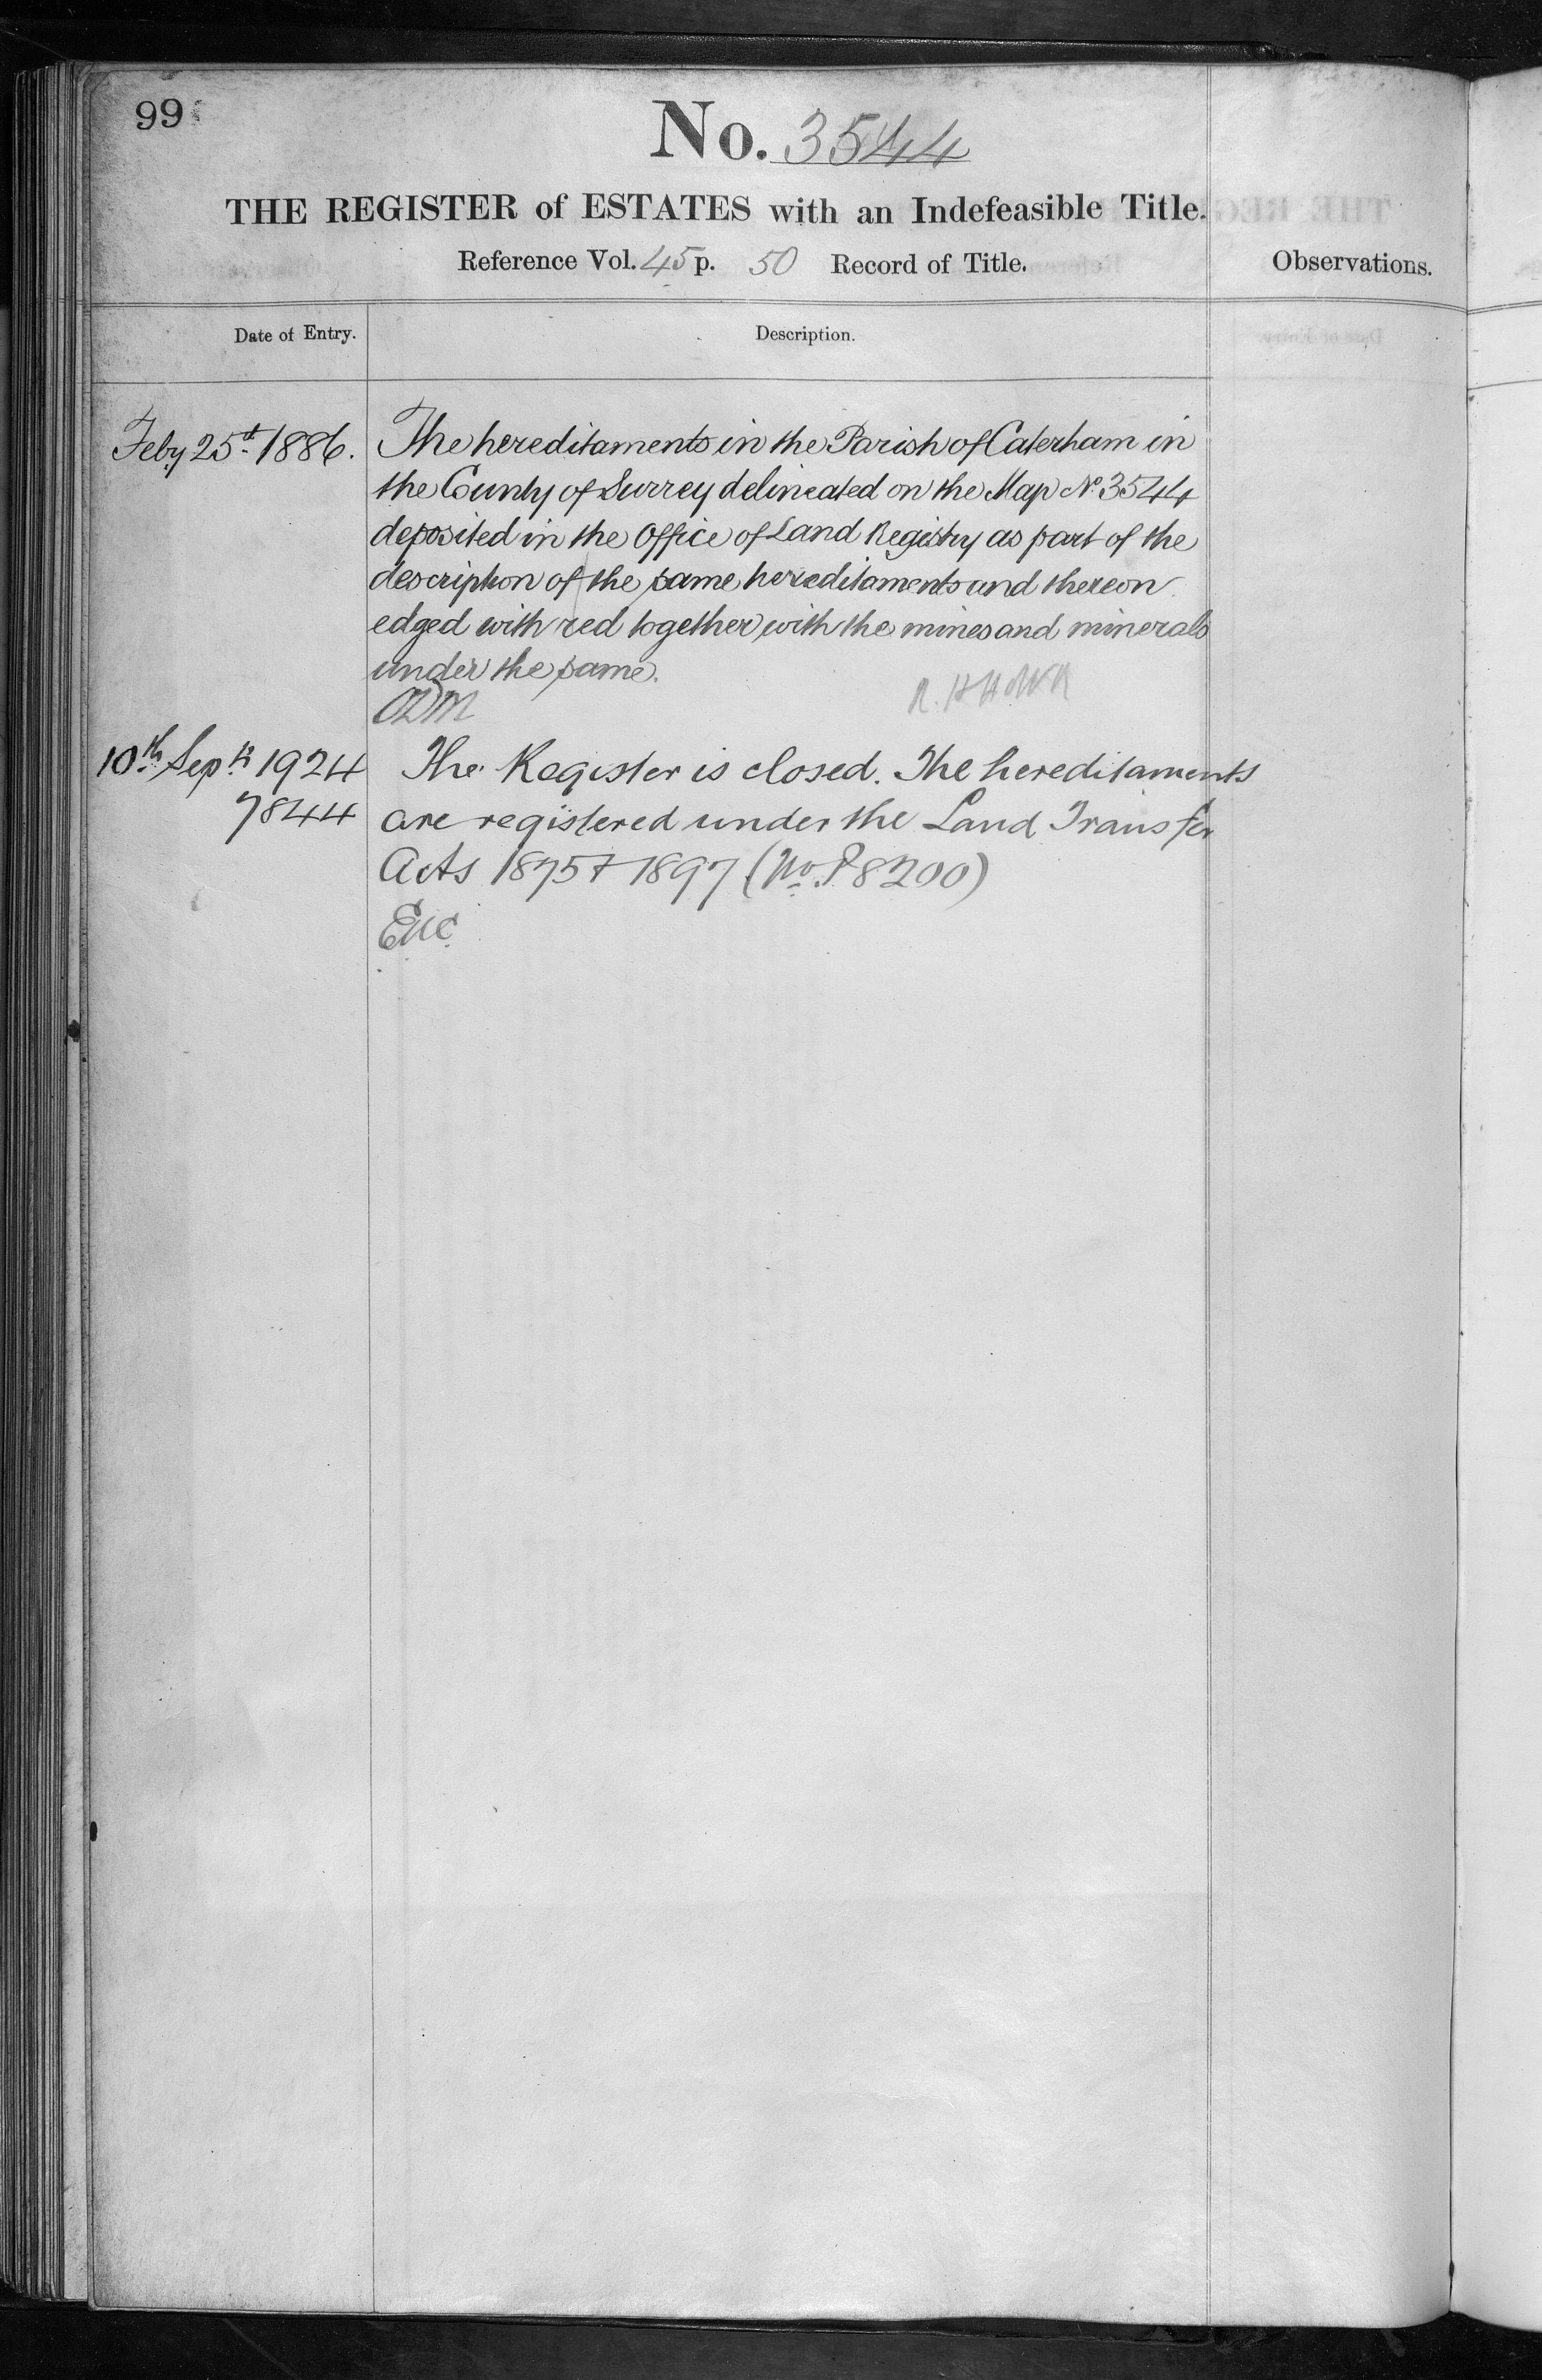 99
No. 3544
THE REGISTER of ESTATES with an Indefeasible Title.
Reference Vol. 45 p. 50 Record of Title.
Observations.
Date of Entry.
Description.
Feby 25th 1886.
The hereditaments in the Parish of Caterham in
the County of Surrey delineated on the Map No. 3544
deposited in the Office of Land Registry as part of the
description of the same hereditaments and thereon
edged with red together with the mines and minerals
under the same.
10th Sepr. 1924
7844
The Register is closed. The hereditaments
are registered under the Land Transfer
Acts 1875 & 1897 (No. P8200)